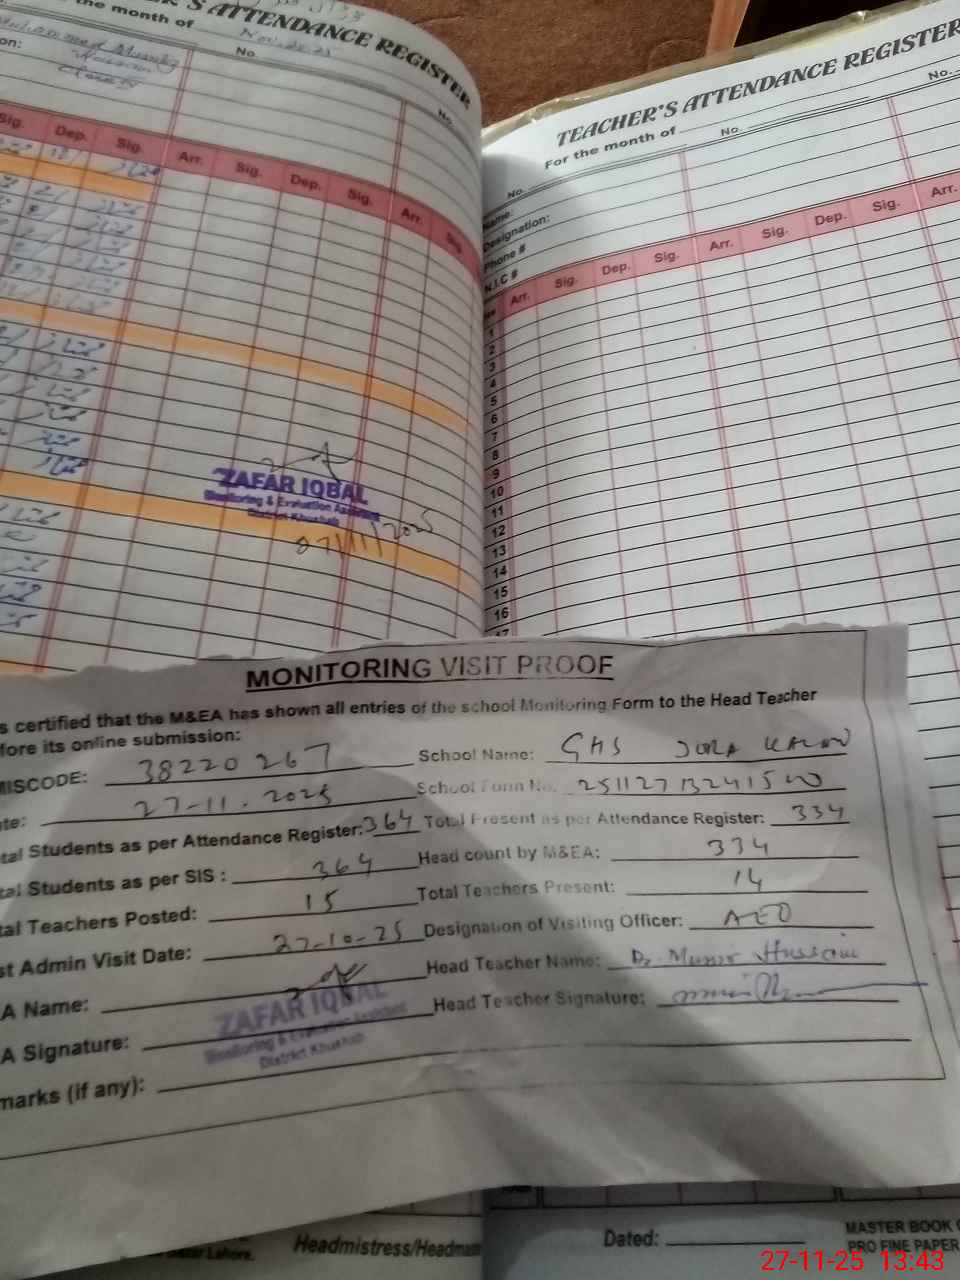 'S ATTENDANCE REGISTER
the month of Nov. 2025
No.
No.
on:
Sig. Dep. Sig. Arr. Sig. Dep. Sig. Arr. Sig.
ZAFAR IQBAL
Monitoring & Evaluation Assistant
District Khushab
07/11/2025
TEACHER'S ATTENDANCE REGISTER
For the month of
No. No. No.
Name:
Designation:
Phone #
N.I.C #
Arr. Sig. Dep. Sig. Arr. Sig. Dep. Sig. Arr.
1
2
3
4
5
6
7
8
9
10
11
12
13
14
15
16
17
MONITORING VISIT PROOF
s certified that the M&EA has shown all entries of the school Monitoring Form to the Head Teacher
fore its online submission:
MISCODE: 38220267 School Name: GHS JORA KALAN
te: 27-11-2025 School Form No. 25112713241500
tal Students as per Attendance Register: 364 Total Present as per Attendance Register: 334
tal Students as per SIS : 364 Head count by M&EA: 334
tal Teachers Posted: 15 Total Teachers Present: 14
st Admin Visit Date: 27-10-25 Designation of Visiting Officer: AEO
A Name: Head Teacher Name: Dr. Munir Hussain
A Signature: Head Teacher Signature:
ZAFAR IQBAL
Monitoring & Evaluation Assistant
District Khushab
marks (if any):
Lahore.
Headmistress/Headmas
Dated:
MASTER BOOK
PRO FINE PAPER
27-11-25 13:43